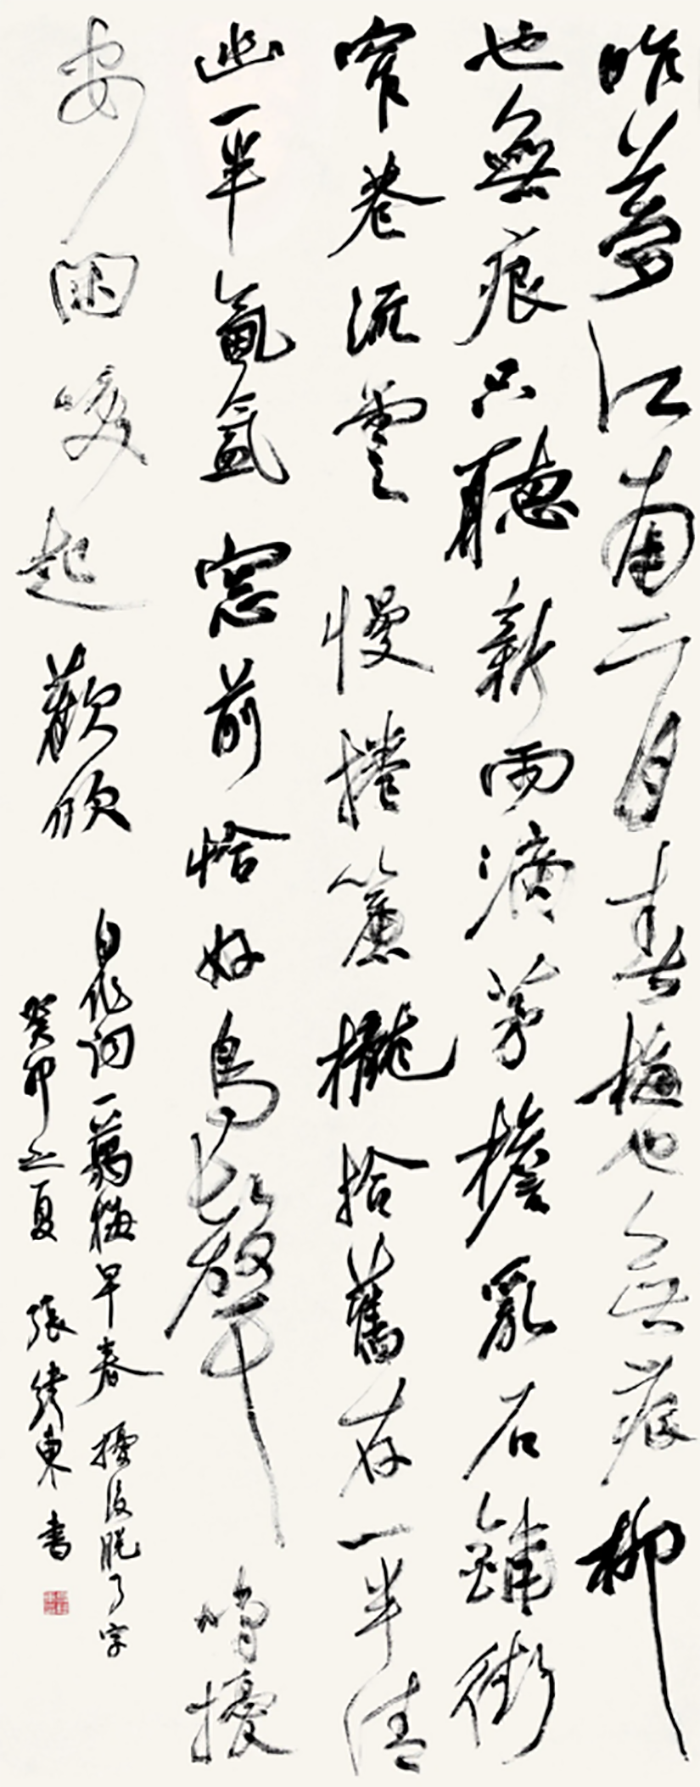 昨夢江南二月春梅也無痕柳
也無痕只聽新雨滴茅檐亂石鋪街
窄巷流雲慢捲簾櫳拾舊存一半清
幽一半氤氳窓前恰好鳥聲鳴擾
安困喚起歡欣
自作詞一萼梅早春擾後脱了字
癸卯之夏張繼東書